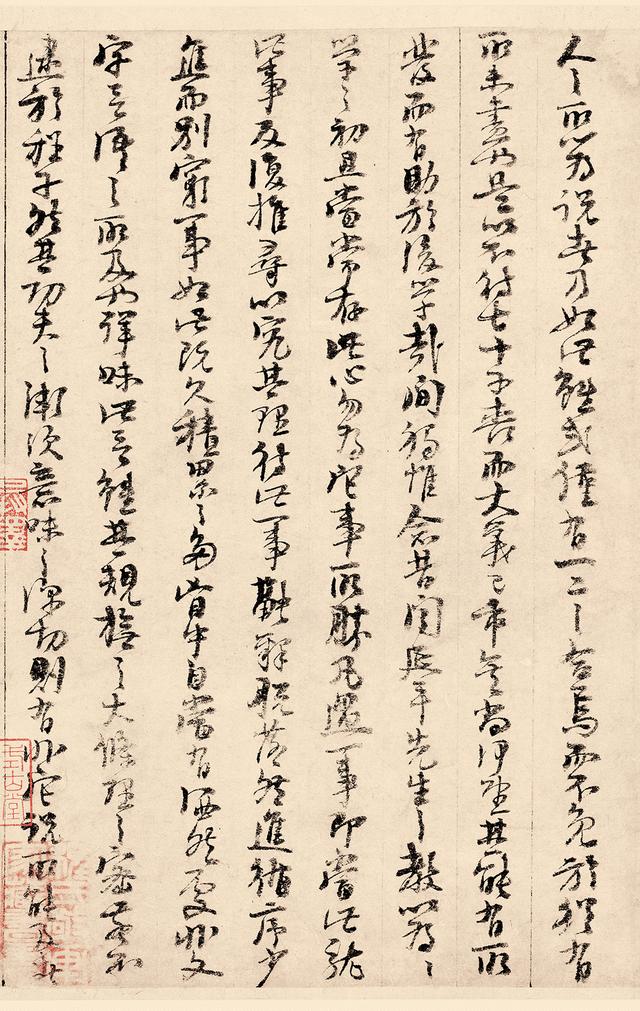 人之所以為說者乃如此雖或僅有一二之合焉而不免於猶有
所未盡也是以不待七十子喪而大義已乖矣尚何望其能有所
發而有助於後學哉間獨惟念昔聞延平先生之教以為為
學之初且當常存此心勿為它事所勝凡遇一事即當且就
此事反復推尋以究其理待此一事融釋脫落然後循序少
進而別窮一事如此既久積累之多胸中自當有洒然處非文
字言語之所及也詳味此言雖其規模之大條理之密若不
逮於程子然其功夫之漸次意味之深切則有非它說所能及者